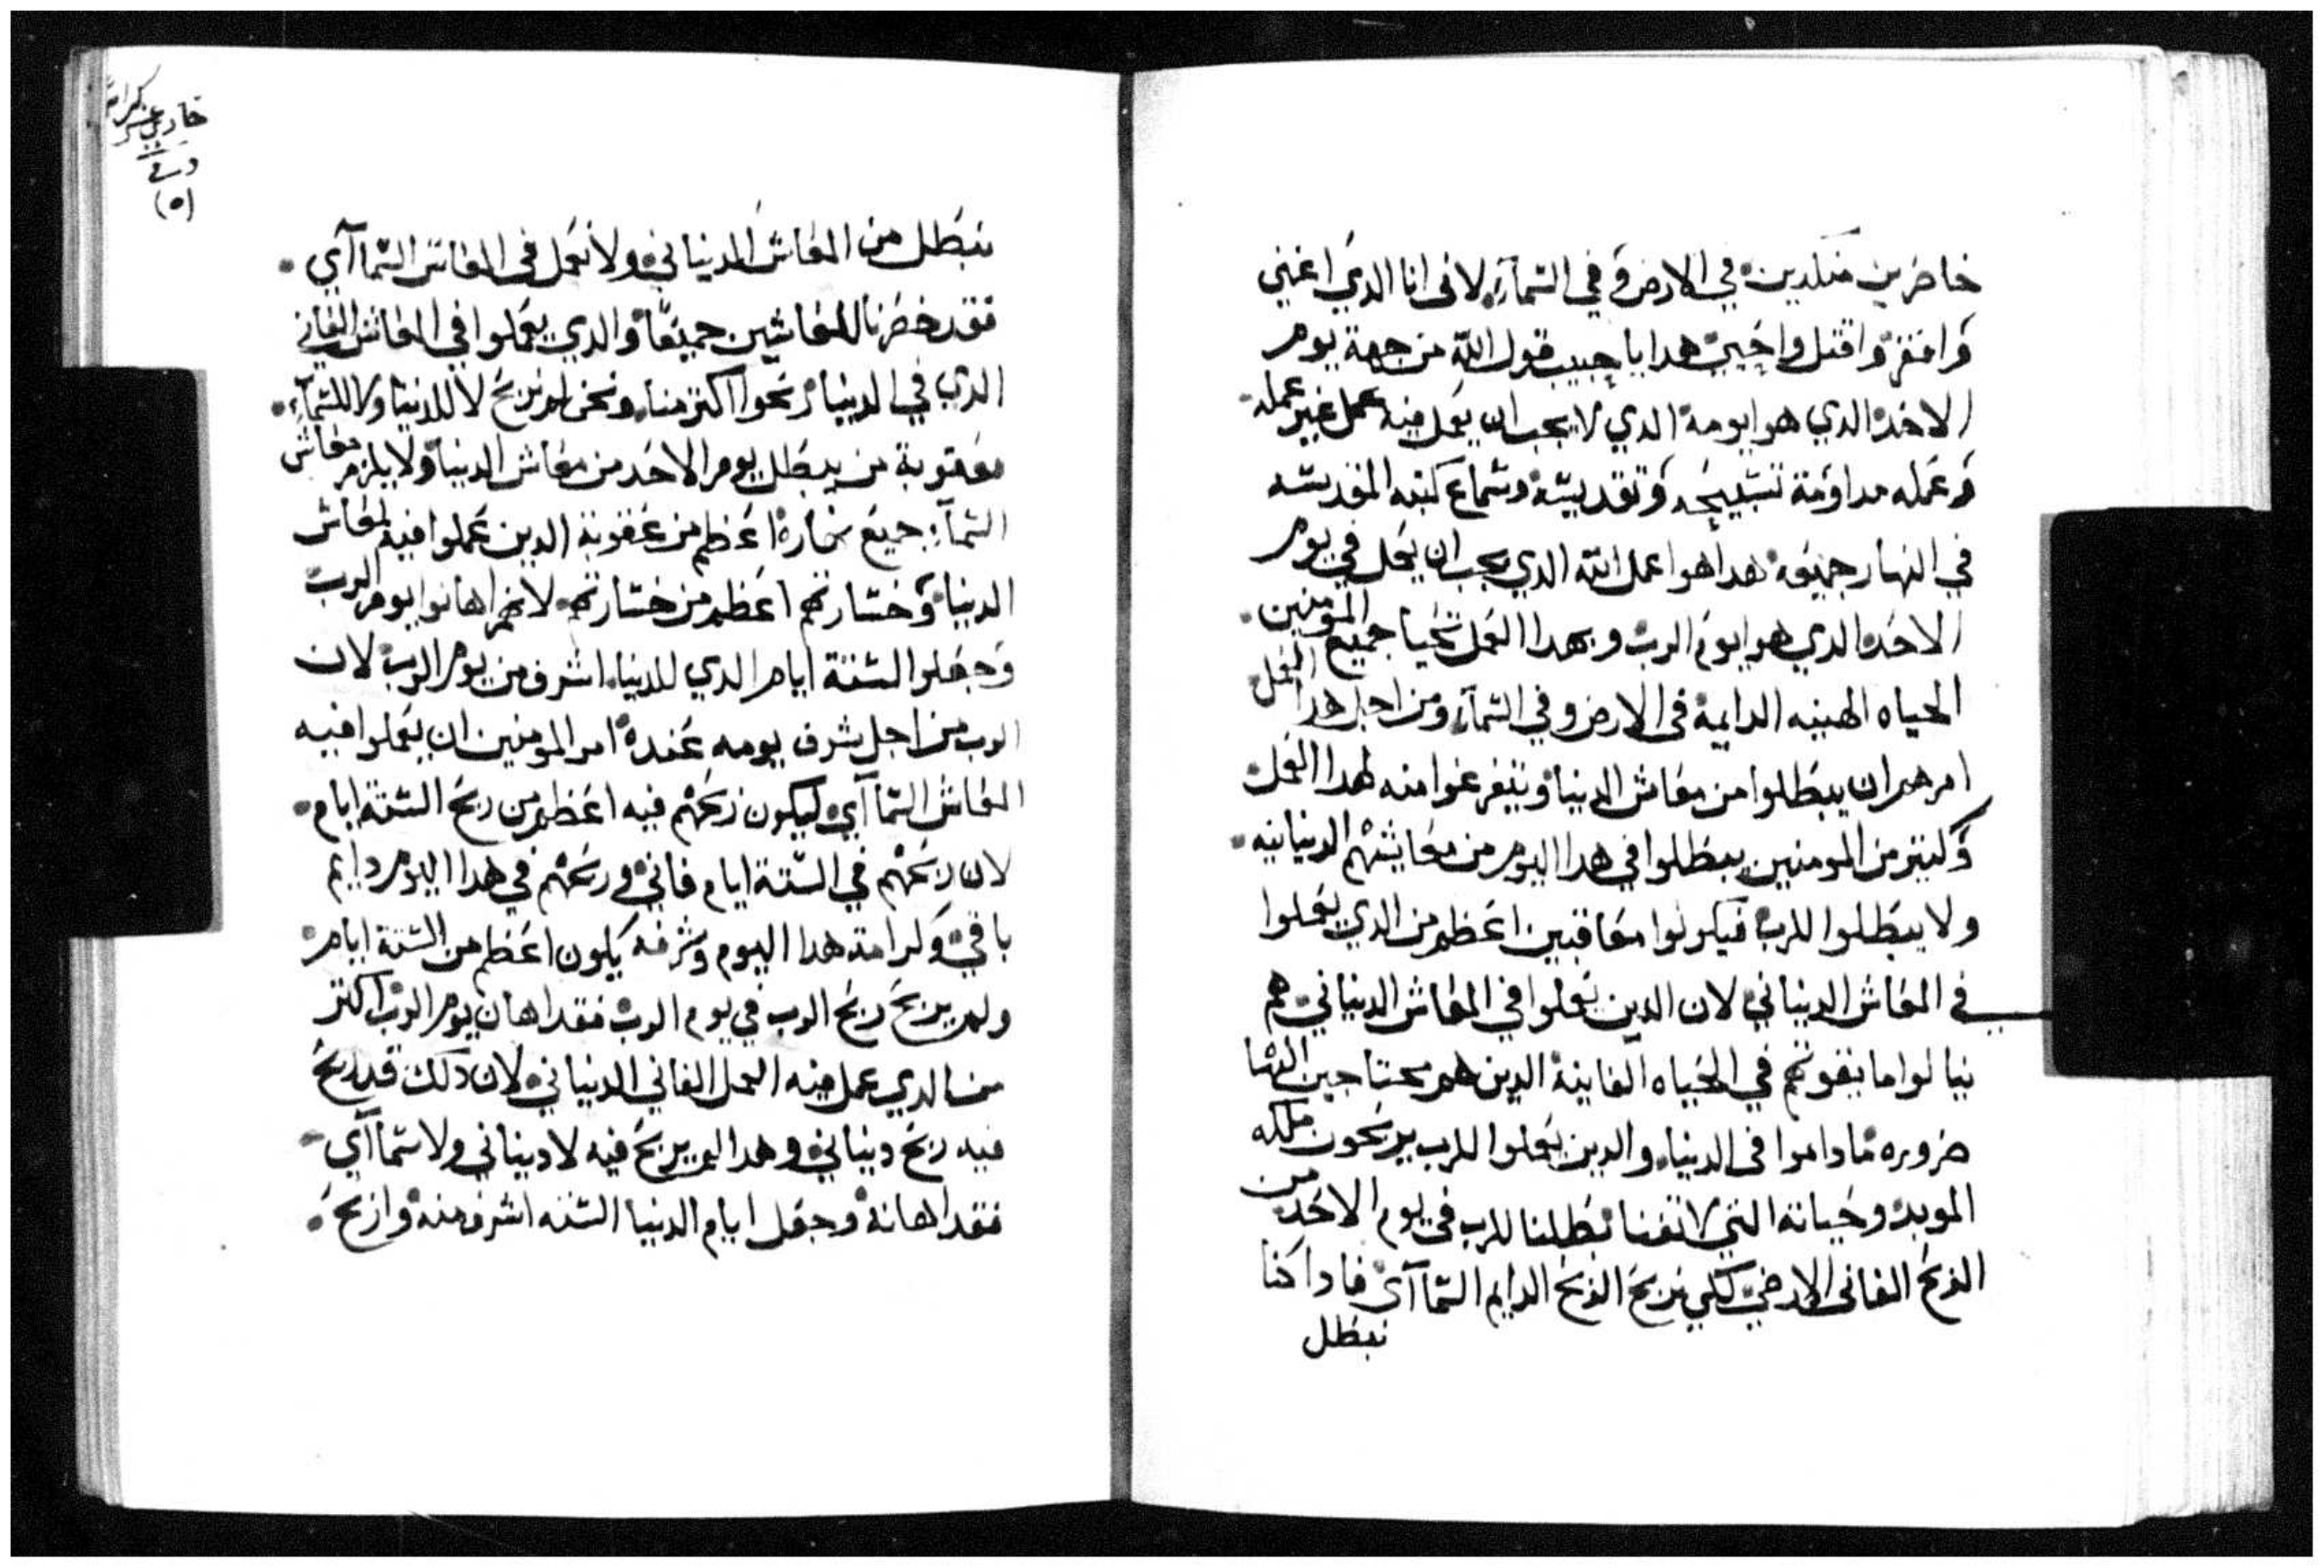 خاضرين منكدين في الارض وفي السمآء لانى انا الدي اغني
وافقر واقتل واحيي هدا يا حبيب قول الله من جهة يوم
الاحد الدي هوا يومه الدي لا يجب ان يعمل فيه عمل غير عمله
وعمله مداومة تسبيحه وتقديسه وسماع كتبه المقدسه
في النهار جميعه هدا هوا عمل الله الدي يجب ان يعمل في يوم
الاحد الدي هوا يوم الرب وبهدا العمل تحيا جميع المومنين
الحياه الهنيه الدايمة فى الارض وفي السمآء ومن اجل هدا العمل
امرهم ان يبطلوا من معاش الدنيا ويتفرغوا منه لهدا العمل
وكتير من المومنين يبطلوا في هدا اليوم من معايشهم الدنيانيه
ولا يبطلوا للرب فيكونوا معاقبين اعظم من الدي يعملوا
في المعاش الدنياني لان الدين يعملوا في المعاش الدنياني هم
ينالوا ما يقوتهم في الحياه الفانية الدين هم محتاجين اليها
ضروره ما داموا فى الدنيا والدين يعملوا للرب يربحون ملكه
الموبد وحياته التي لا تفنا بطلنا للرب فى يوم الاحد من
الربح الفانى الارضي لكي نربح الربح الدايم السماآي فادا كنا
نبطل
نبطل من المعاش الدنياني ولا نعمل في المعاش السماآي
فقد خسرنا المعاشين جميعًا والدي يعملوا في المعاش الفاني
الدي في الدنيا ربحوا اكتر منا ونحن لم نربح لا للدنيا ولا للسمآء
فعقوبة من يبطل يوم الاحد من معاش الدنيا ولا يلزم معاش
السمآء جميع نهاره اعظم من عقوبة الدين عملوا فيه لمعاش
الدنيا وخسارتهم اعظم من خسارتهم لانهم اهانوا يوم الرب
وجعلوا الستة ايام الدي للدنيا اشرف من يوم الرب لان
الرب من اجل شرف يومه عنده امر المومنين ان يعملوا فيه
المعاش السماآي ليكون ربحهم فيه اعظم من ربح الستة ايام
لان ربحهم في الستة ايام فاني وربحهم في هدا اليوم دايم
باقي وكرامة هدا اليوم وشرفه يكون اعظم من الستة ايام
ولم يربح ربح الرب في يوم الرب فقد اهان يوم الرب اكتر
من الدي عمل فيه العمل الفاني الدنياني لان دلك قد ربح
فيه ربح دنياني وهدا لم يربح فيه لا دنياني ولا سماآي
فقد اهانه وجعل ايام الدنيا الستة اشرف منه واربح